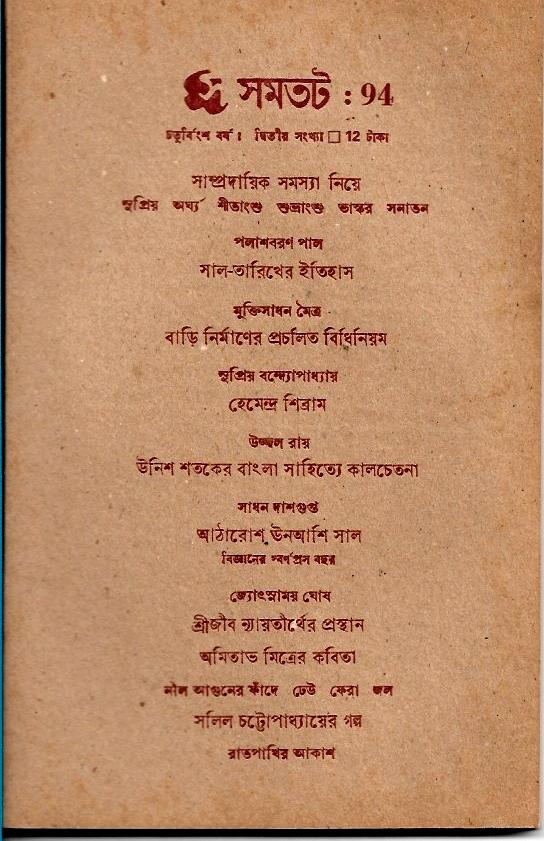 সমতট : 94
চতুর্বিংশ বর্ষ : দ্বিতীয় সংখ্যা □ 12 টাকা
সাম্প্রদায়িক সমস্যা নিয়ে
সুপ্রিয় অর্ঘ্য শীতাংশু শুভ্রাংশু ভাস্কর সনাতন
পলাশবরণ পাল
সাল-তারিখের ইতিহাস
মুক্তিসাধন মৈত্র
বাড়ি নির্মাণের প্রচলিত বিধিনিয়ম
সুপ্রিয় বন্দ্যোপাধ্যায়
হেমেন্দ্র শিব্রাম
উজ্জ্বল রায়
উনিশ শতকের বাংলা সাহিত্যে কালচেতনা
সাধন দাশগুপ্ত
আঠারোশ ঊনআশি সাল
বিজ্ঞানের স্বর্ণপ্রস বছর
জ্যোৎস্নাময় ঘোষ
শ্রীজীব ন্যায়তীর্থের প্রস্থান
অমিতাভ মিত্রের কবিতা
নীল আগুনের ফাঁদে ঢেউ ফেরা জল
সলিল চট্টোপাধ্যায়ের গল্প
রাতপাখির আকাশ